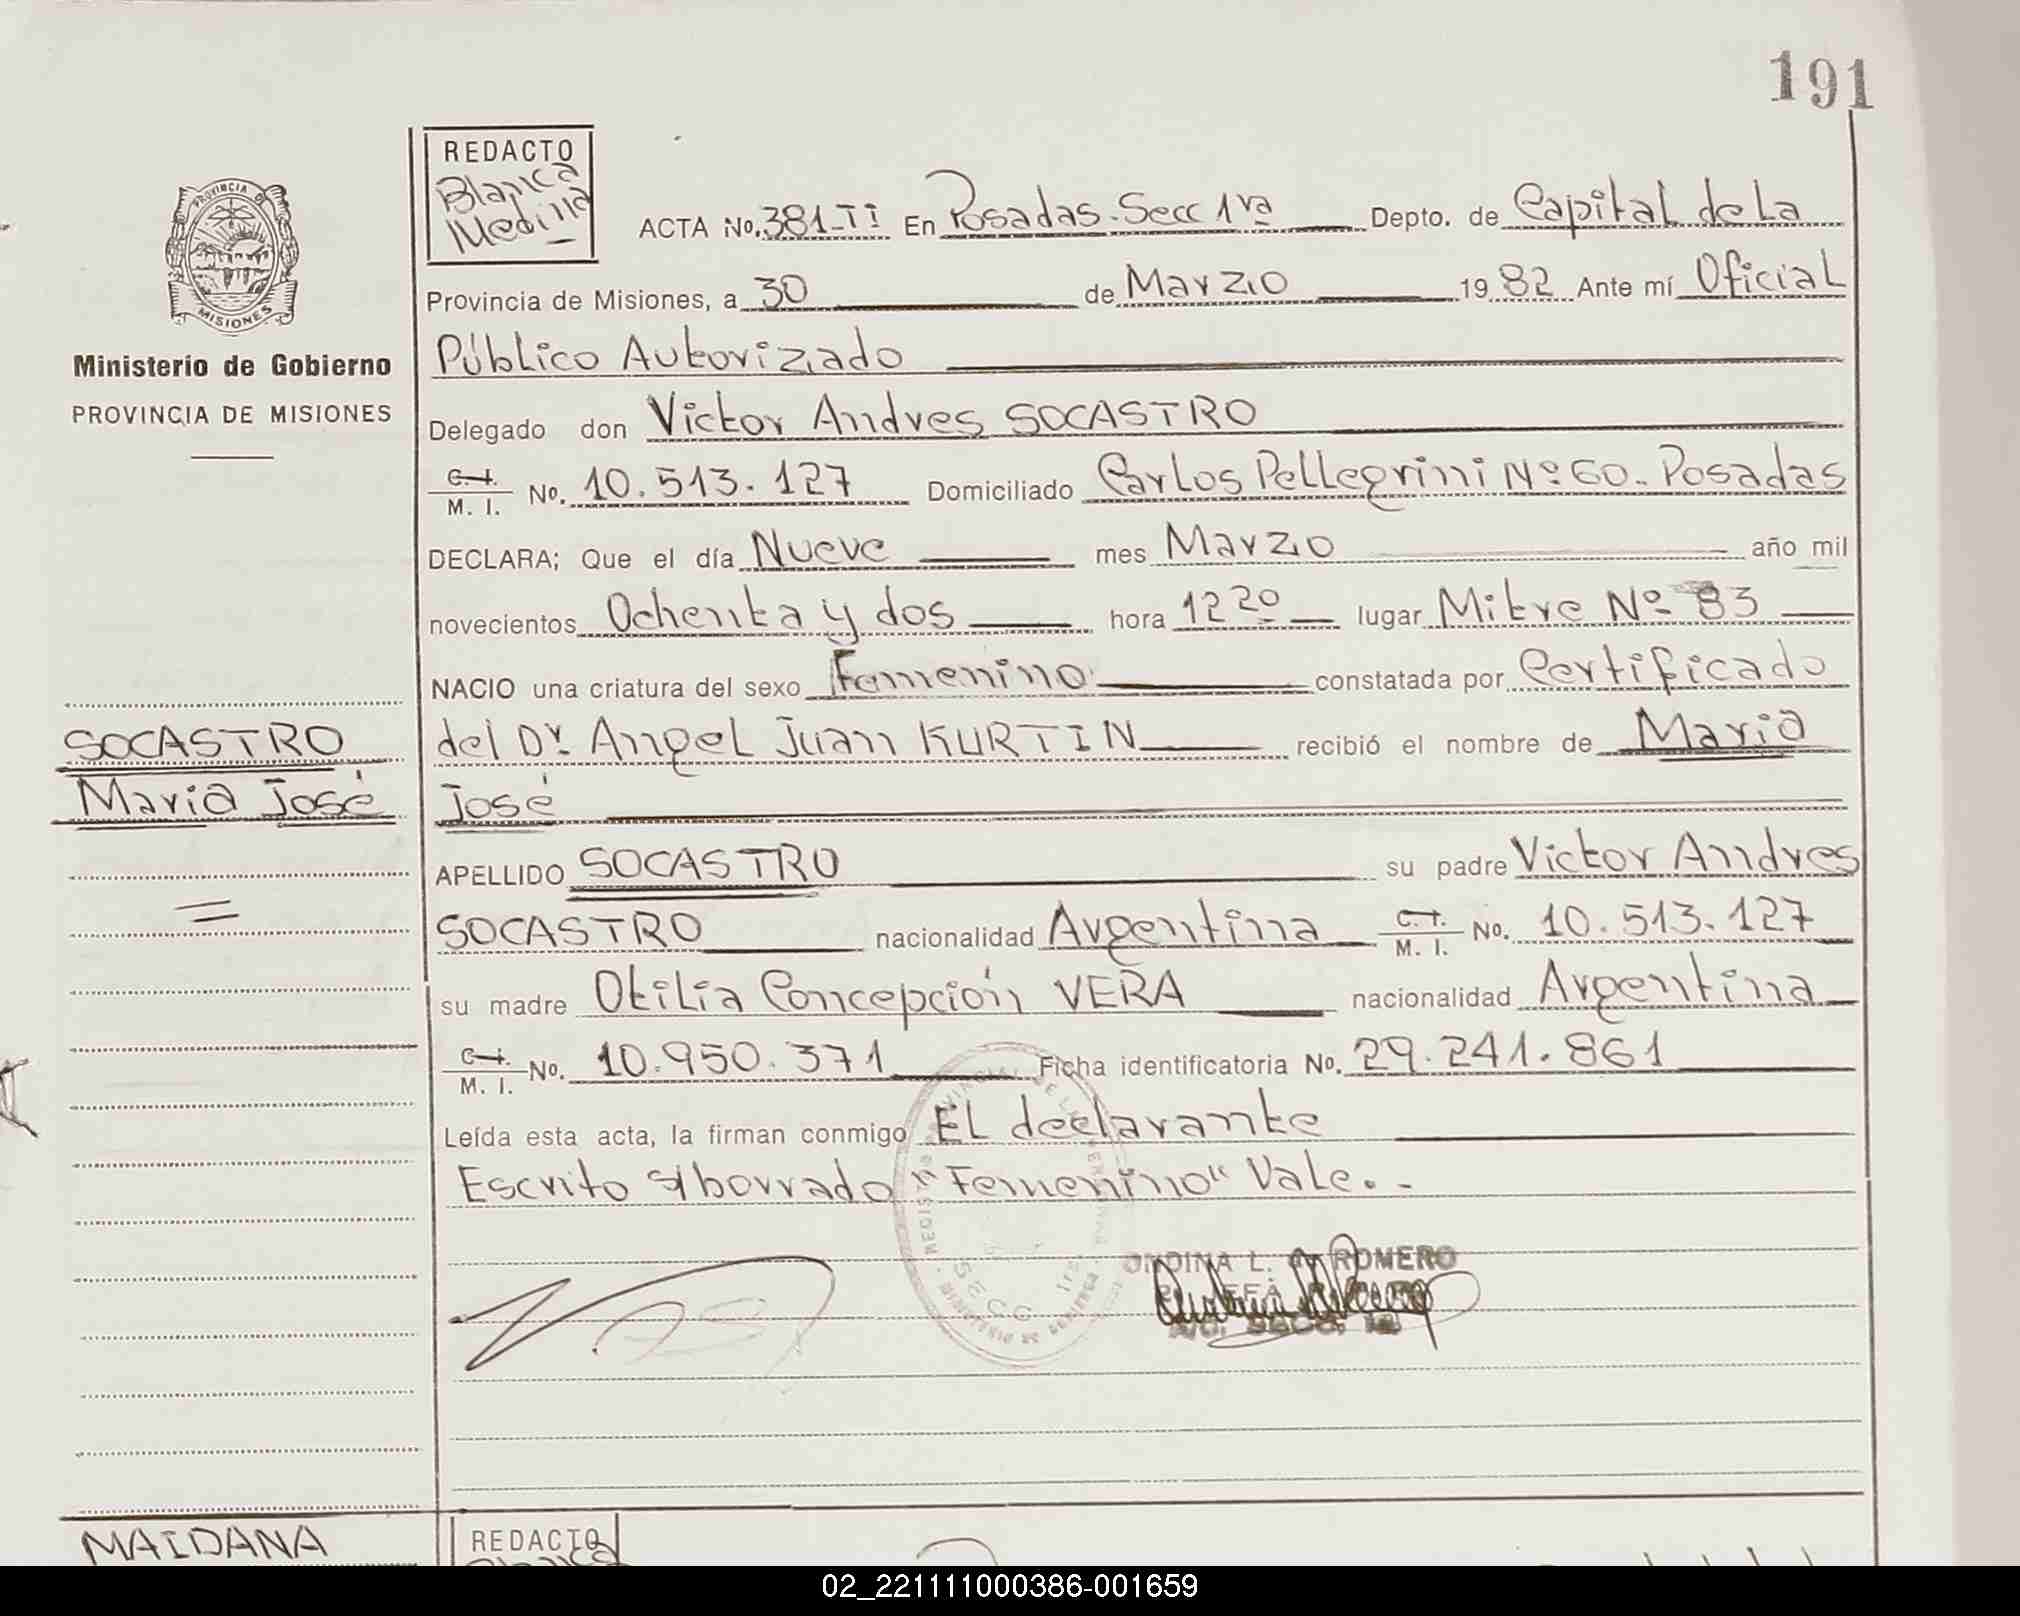 191
REDACTO
Blanca
Medina
PROVINCIA DE
MISIONES
Ministerio de Gobierno
PROVINCIA DE MISIONES
ACTA No. 381-TI En Posadas. Secc 1ra Depto. de Capital de La
Provincia de Misiones, a 30 de Marzo 1982 Ante mí Oficial
Público Autorizado
Delegado don Victor Andres SOCASTRO
C.I. M. I. No. 10.513.127 Domiciliado Carlos Pellegrini Nº 60. Posadas
DECLARA; Que el día Nueve mes Marzo año mil
novecientos Ochenta y dos hora 12 20 lugar Mitre Nº 83
NACIO una criatura del sexo Femenino constatada por Certificado
del Dr. Angel Juan KURTIN recibió el nombre de Maria
José
SOCASTRO
Maria José
APELLIDO SOCASTRO su padre Victor Andres
SOCASTRO nacionalidad Argentina C.I. M. I. No. 10.513.127
su madre Otilia Concepción VERA nacionalidad Argentina
C.I. M. I. No. 10.950.371 Ficha identificatoria No. 29.241.861
Leída esta acta, la firman conmigo El declarante
Escrito s/borrado "Femenino" Vale.-
ONDINA L. de ROMERO
SECC. 1a
MAIDANA
REDACTO
Blanca
02_221111000386-001659